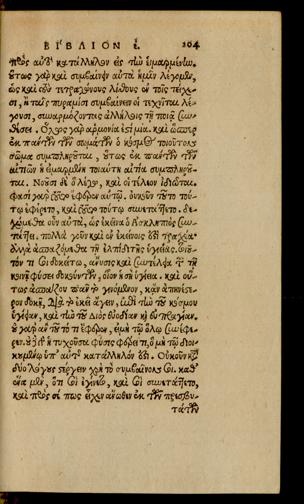 ΒΙΒΛΙΟΝ ε. 104
πρὸς αὐτὸ κατάλληλον ἐς τὴν εἱμαρμένην.
οὕτως γὰρ καὶ συμβαίνειν αὐτὰ ἡμῖν λέγομεν,
ὡς καὶ τοὺς τετραγώνους λίθους ἐν τοῖς τείχε-
σι, ἢ ταῖς πυραμίσι συμβαίνειν οἱ τεχνῖται λέ-
γουσι, συναρμόζοντας ἀλλήλοις τῇ ποιᾷ συν-
θέσει. Ὅλως γὰρ ἁρμονία ἐστὶ μία. καὶ ὥσπερ
ἐκ πάντων τῶν σωμάτων ὁ κόσμος τοιοῦτον
σῶμα συμπληροῦται, οὕτως ἐκ πάντων τῶν
αἰτίων ἡ εἱμαρμένη τοιαύτη αἰτία συμπληροῦ-
ται. Νοοῦσι δὲ ὃ λέγω, καὶ οἱ τέλεον ἰδιῶται.
φασὶ γὰρ τοῦτο ἔφερεν αὐτῷ. οὐκοῦν τοῦτο τού-
τῳ ἐφέρετο, καὶ τοῦτο τούτῳ συνετάττετο. δε-
χώμεθα οὖν αὐτά, ὡς ἐκεῖνα ὁ Ἀσκληπιὸς συν-
τάττει. πολλὰ γοῦν καὶ ἐν ἐκείνοις ἐστὶ τραχέα·
ἀλλὰ ἀσπαζόμεθα τῇ ἐλπίδι τῆς ὑγείας. τοιοῦ-
τόν τι σοι δοκείτω, ἄνυσις καὶ συντέλεια τῶν τῇ
κοινῇ φύσει δοκούντων, οἷον ἡ σὴ ὑγεία. καὶ οὕ-
τως ἀσπάζου πᾶν τὸ γινόμενον, κἂν ἀπηνέστε-
ρον δοκῇ, διὰ τὸ ἐκεῖ ἄγειν, ἐπὶ τὴν τοῦ κόσμου
ὑγείαν, καὶ τὴν τοῦ Διὸς εὐοδίαν καὶ εὐπραγίαν.
οὐ γὰρ ἂν τοῦτό τι ἔφερεν, εἰ μὴ τῷ ὅλῳ συνέφε-
ρεν. οὐδὲ ἡ τυχοῦσα φύσις φέρει τι, ὃ μὴ τῷ διοι-
κουμένῳ ὑπ' αὐτῆς κατάλληλόν ἐστι. Οὐκοῦν κατὰ
δύο λόγους στέργειν χρὴ τὸ συμβαῖνόν σοι. καθ'
ἕνα μὲν, ὅτι σοι ἐγίνετο, καὶ σοι συνετάττετο,
καὶ πρὸς σέ πως εἶχεν ἄνωθεν ἐκ τῶν πρεσβυ-
τάτων